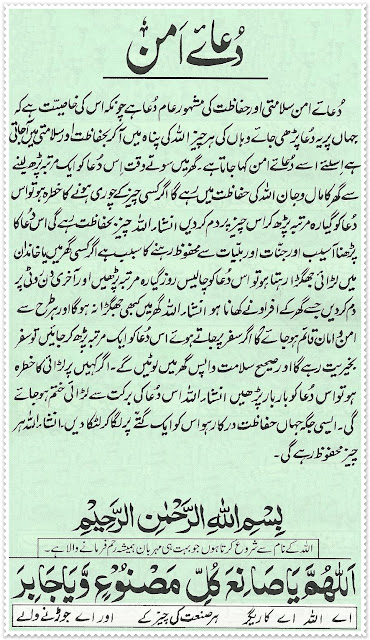 دُعائے اَمن
دُعائے امن سلامتی اور حفاظت کی مشہور عام دُعا ہے چونکہ اس کی خاصیّت ہے کہ
جہاں پر یہ دُعا پڑھی جائے وہاں کی ہر چیز اللہ کی پناہ میں آکر بحفاظت و درسلامتی میں آجاتی
ہے اسلئے اسے دُعائے امن کہا جاتا ہے۔ گھر میں سوتے وقت اِس دُعا کو ایک مرتبہ پڑھ لینے
سے گھر کا مال و جان اللہ کی حفاظت میں رہے گا اگر کسی چیز کے چوری ہونے کا خطرہ ہو تو اس
دُعا کو گیارہ مرتبہ پڑھ کر اس چیز پر دم کر دیں انشاء اللہ چیز بحفاظت رہے گی اس دُعا کا
پڑھنا آسیب اور جنّات اور بلیّات سے محفوظ رہنے کا سبب ہے اگر کسی گھر میں یا خاندان
میں لڑائی جھگڑا رہتا ہو تو اس دُعا کو چالیس روز گیارہ مرتبہ پڑھیں اور آخری دن روٹی پر
دم کر دیں جسے گھر کے افراد نے کھانا ہو انشاء اللہ گھر میں کبھی جھگڑا نہ ہوگا اور ہر طرح سے
امن و امان قائم ہو جائے گا اگر سفر پر جاتے ہوئے اس دُعا کو ایک مرتبہ پڑھ کر جائیں تو سفر
بخیریت رہے گا اور صحیح سلامت واپس گھر میں لوٹیں گے۔ اگر کہیں پر لڑائی کا خطرہ
ہو تو اس دُعا کو بار بار پڑھیں انشاء اللہ اس دُعا کی برکت سے لڑائی ختم ہو جائے
گی۔ ایسی جگہ جہاں حفاظت درکار ہو اس کو ایک گتّے پر لگا کر لٹکا دیں انشاء اللہ ہر
چیز محفوظ رہے گی۔
بِسْمِ اللهِ الرَّحْمٰنِ الرَّحِيْمِ
اللہ کے نام سے شروع کرتا ہوں جو بہت ہی مہربان ہمیشہ رحم فرمانے والا ہے۔
اَللّٰهُمَّ يَا صَانِعَ كُلِّ مَصْنُوْعٍ وَّيَا جَابِرَ
اے اللہ اے کاریگر ہر صنعت کی چیز کے اور اے جوڑنے والے